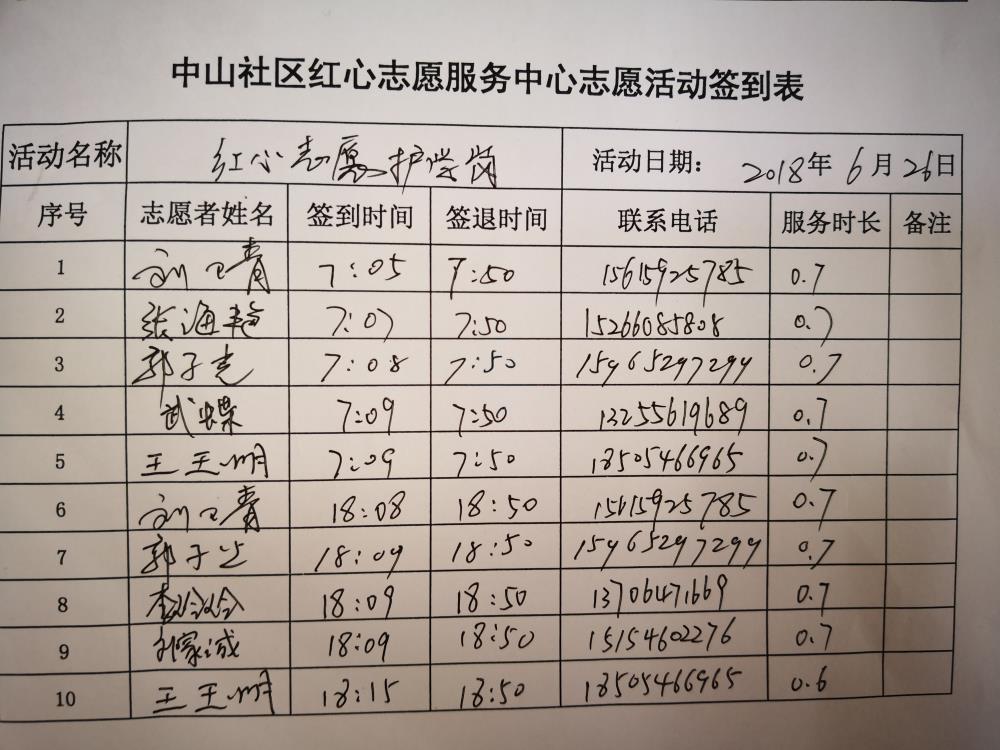 中山社区红心志愿服务中心志愿活动签到表
活动名称 红心志愿护学岗 活动日期: 2018年6月26日
序号 志愿者姓名 签到时间 签退时间 联系电话 服务时长 备注
1 刘卫青 7:05 7:50 15615925785 0.7
2 张海艳 7:07 7:50 15266085808 0.7
3 郭子光 7:08 7:50 15965297299 0.7
4 武蝶 7:09 7:50 13255619689 0.7
5 王玉明 7:09 7:50 18505466965 0.7
6 刘卫青 18:08 18:50 15615925785 0.7
7 郭子光 18:09 18:50 15965297299 0.7
8 18:09 18:50 13706471669 0.7
9 孙家诚 18:09 18:50 15154602276 0.7
10 王玉明 18:15 18:50 18505466965 0.6